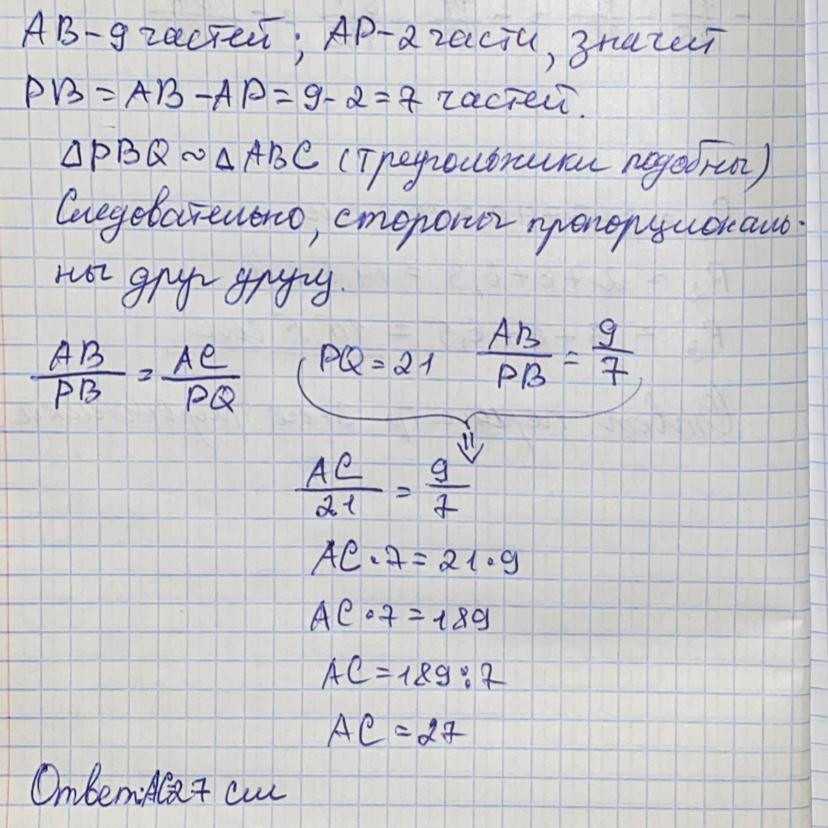 AB - 9 частей; AP - 2 части, значит
PB = AB - AP = 9 - 2 = 7 частей.
ΔPBQ ~ ΔABC (треугольники подобны)
Следовательно, стороны пропорциональ-
ны друг другу.
AB/PB = AC/PQ PQ = 21 AB/PB = 9/7
⇓
AC/21 = 9/7
AC · 7 = 21 · 9
AC · 7 = 189
AC = 189 : 7
AC = 27
Ответ: AC=27 см